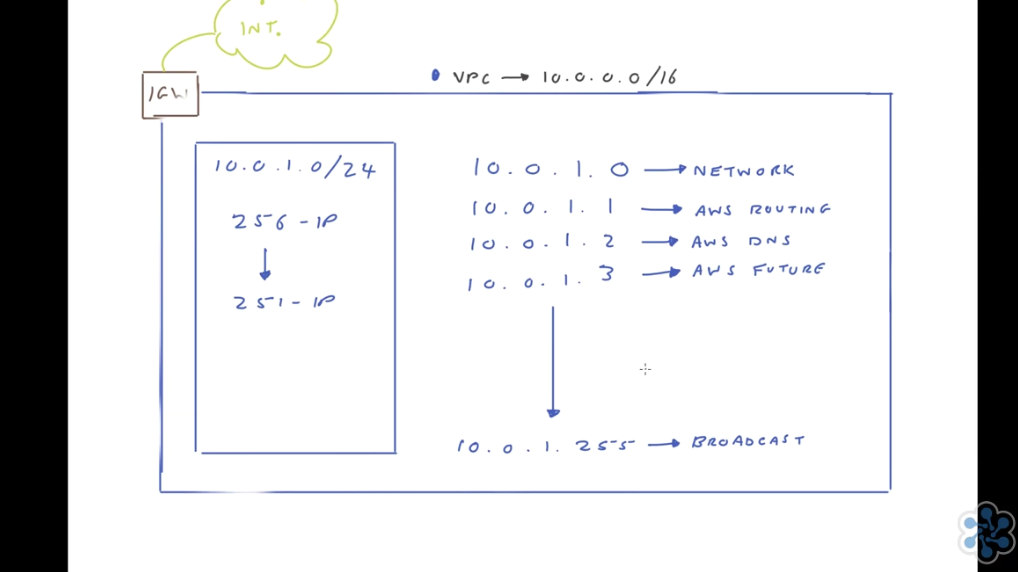 INT.
IGW
• VPC → 10.0.0.0/16
10.0.1.0/24
256-IP
↓
251-IP
10.0.1.0 → NETWORK
10.0.1.1 → AWS ROUTING
10.0.1.2 → AWS DNS
10.0.1.3 → AWS FUTURE
↓
10.0.1.255 → BROADCAST